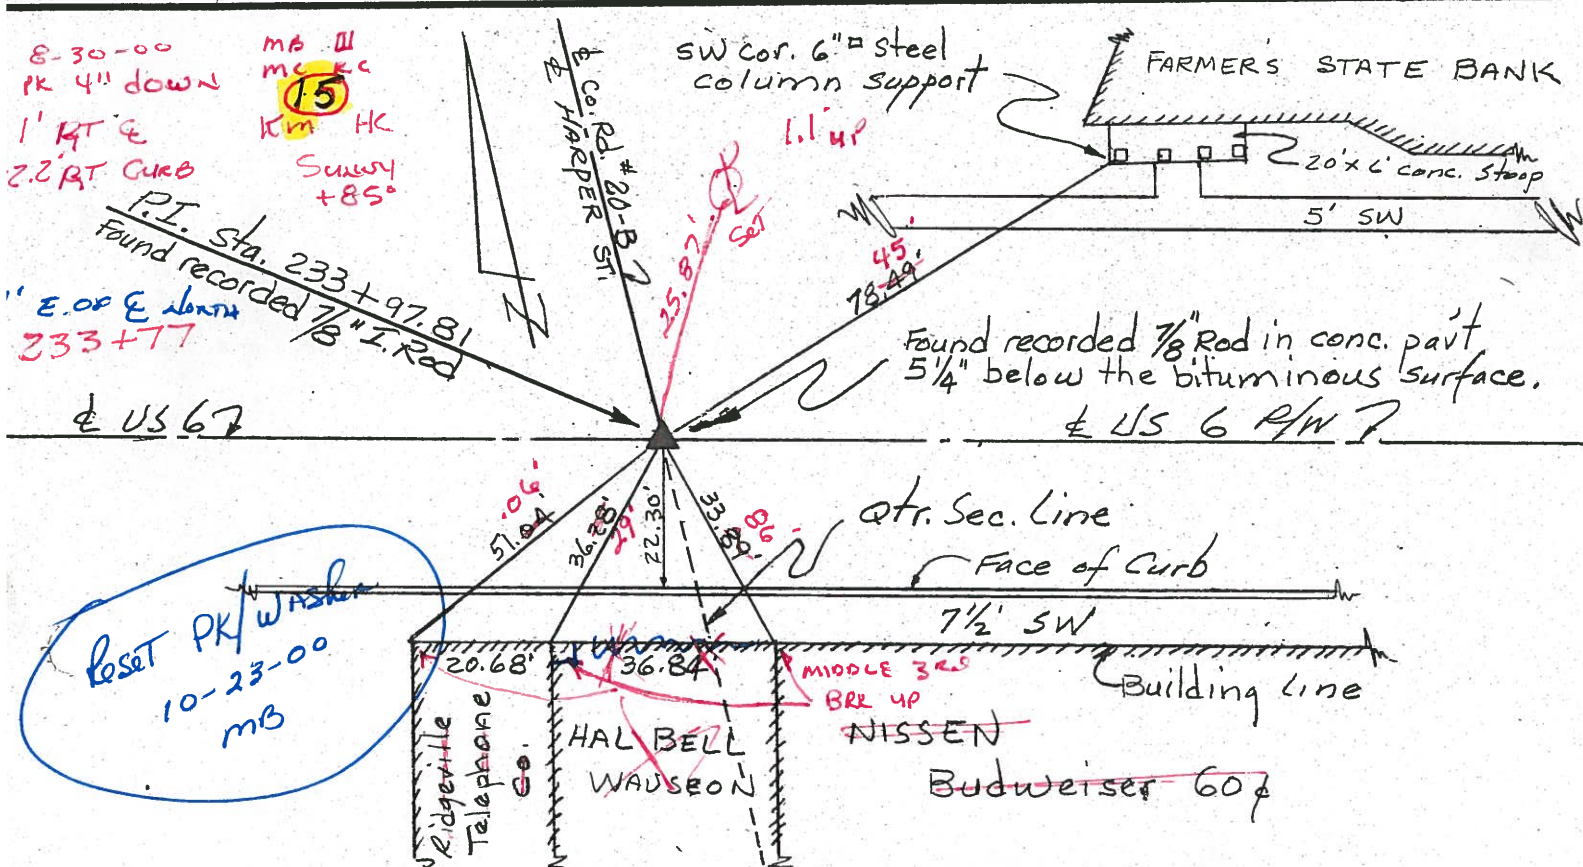 8-30-00
PK 4" down
1' RT ℄
2.2' RT CURB
MB III
MC KC
15
KM HC
SUNNY
+85°
P.I. Sta. 233+97.81
Found recorded 7/8" I. Rod
1" E. OF ℄ NORTH
233+77
℄ Co. Rd. #20-B
℄ HARPER ST.
SW cor. 6" ¤ Steel
column support
1.1' up
FARMER'S STATE BANK
20' x 6' conc. Stoop
5' SW
25.87'
Set
45'
78.49'
Found recorded 7/8" Rod in conc. pav't
5 1/4" below the bituminous surface.
℄ US 6
℄ US 6 R/W
.06'
51.04'
36.28'
29'
22.30'
33.89'
86
Qtr. Sec. Line
Face of Curb
7 1/2' SW
Reset PK/Washer
10-23-00
MB
20.68'
36.84
MIDDLE 3RD
BRK UP
Building Line
Ridgeville
Telephone
Co.
HAL BELL
WAUSEON
NISSEN
Budweiser 60¢